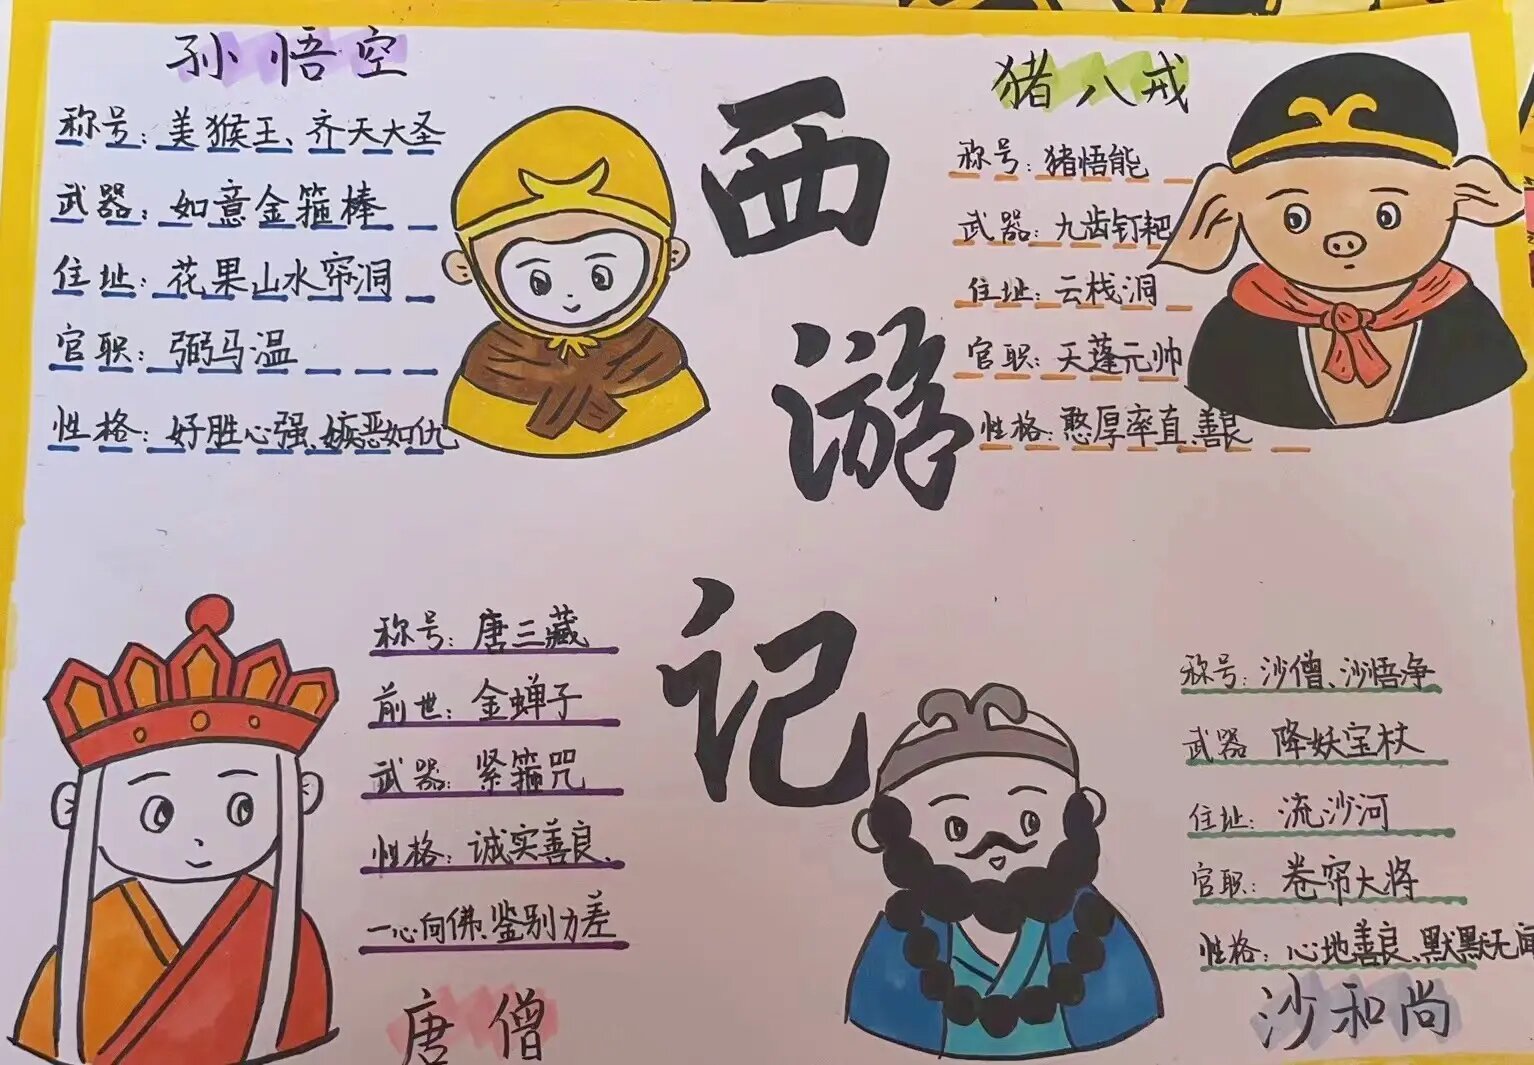 孙悟空
称号：美猴王、齐天大圣
武器：如意金箍棒
住址：花果山水帘洞
官职：弼马温
性格：好胜心强、嫉恶如仇
西游记
猪八戒
称号：猪悟能
武器：九齿钉耙
住址：云栈洞
官职：天蓬元帅
性格：憨厚率直、善良
称号：唐三藏
前世：金蝉子
武器：紧箍咒
性格：诚实善良、
一心向佛、鉴别力差
唐僧
称号：沙僧、沙悟净
武器 降妖宝杖
住址：流沙河
官职：卷帘大将
性格：心地善良、默默无闻
沙和尚